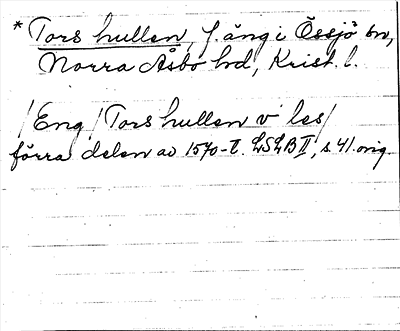 * Tors hullen, f. äng i Össjö sn,
Norra Åsbo hd, Krist. l.
/Eng/ Tors hullen v les/
förra delen av 1570-t. LSLB II, s. 41. orig.